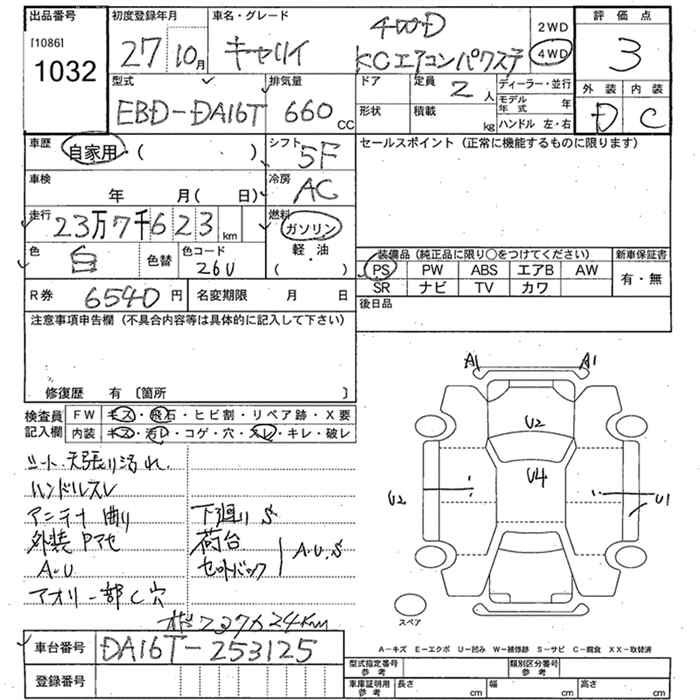 出品番号 初度登録年月 車名・グレード 4WD 2WD 評価点
[1086] 27 10月 キャリイ KCエアコンパワステ 4WD 3
1032
型式 排気量 ドア 定員 2人 ディーラー・並行 外装 内装
EBD-DA16T 660cc 形状 積載 kg モデル年式 年 D C
ハンドル 左・右
車歴 自家用・( ) シフト 5F セールスポイント(正常に機能するものに限ります)
車検 年 月( 日) 冷房 AC
走行 23万7千623km 燃料 ガソリン 軽・油 ( )
色 白 色替 色コード 26U
装備品(純正品に限り○をつけてください) 新車保証書
PS PW ABS エアB AW 有・無
SR ナビ TV カワ
R券 6540円 名変期限 月 日 後日品
注意事項申告欄(不具合内容等は具体的に記入して下さい)
修復歴 有 〔箇所 〕
検査員記入欄 FW キズ・飛石・ヒビ割・リペア跡・X要
内装 キズ・汚レ・コゲ・穴・スレ・キレ・破レ
シート、天張り汚れ
ハンドルスレ
アンテナ曲り 下廻りS
外装Pマセ 荷台
A・U セットバック A・U・S
アオリ一部C穴
A1 A1
U2
U4
U2 U1
スペア
A-キズ E-エクボ U-凹み W-補修跡 S-サビ C-腐食 XX-取替済
車台番号 DA16T-253125
登録番号
型式指定番号 参考 類別区分番号 参考
車庫証明用 参考 長さ cm 幅 cm 高さ cm